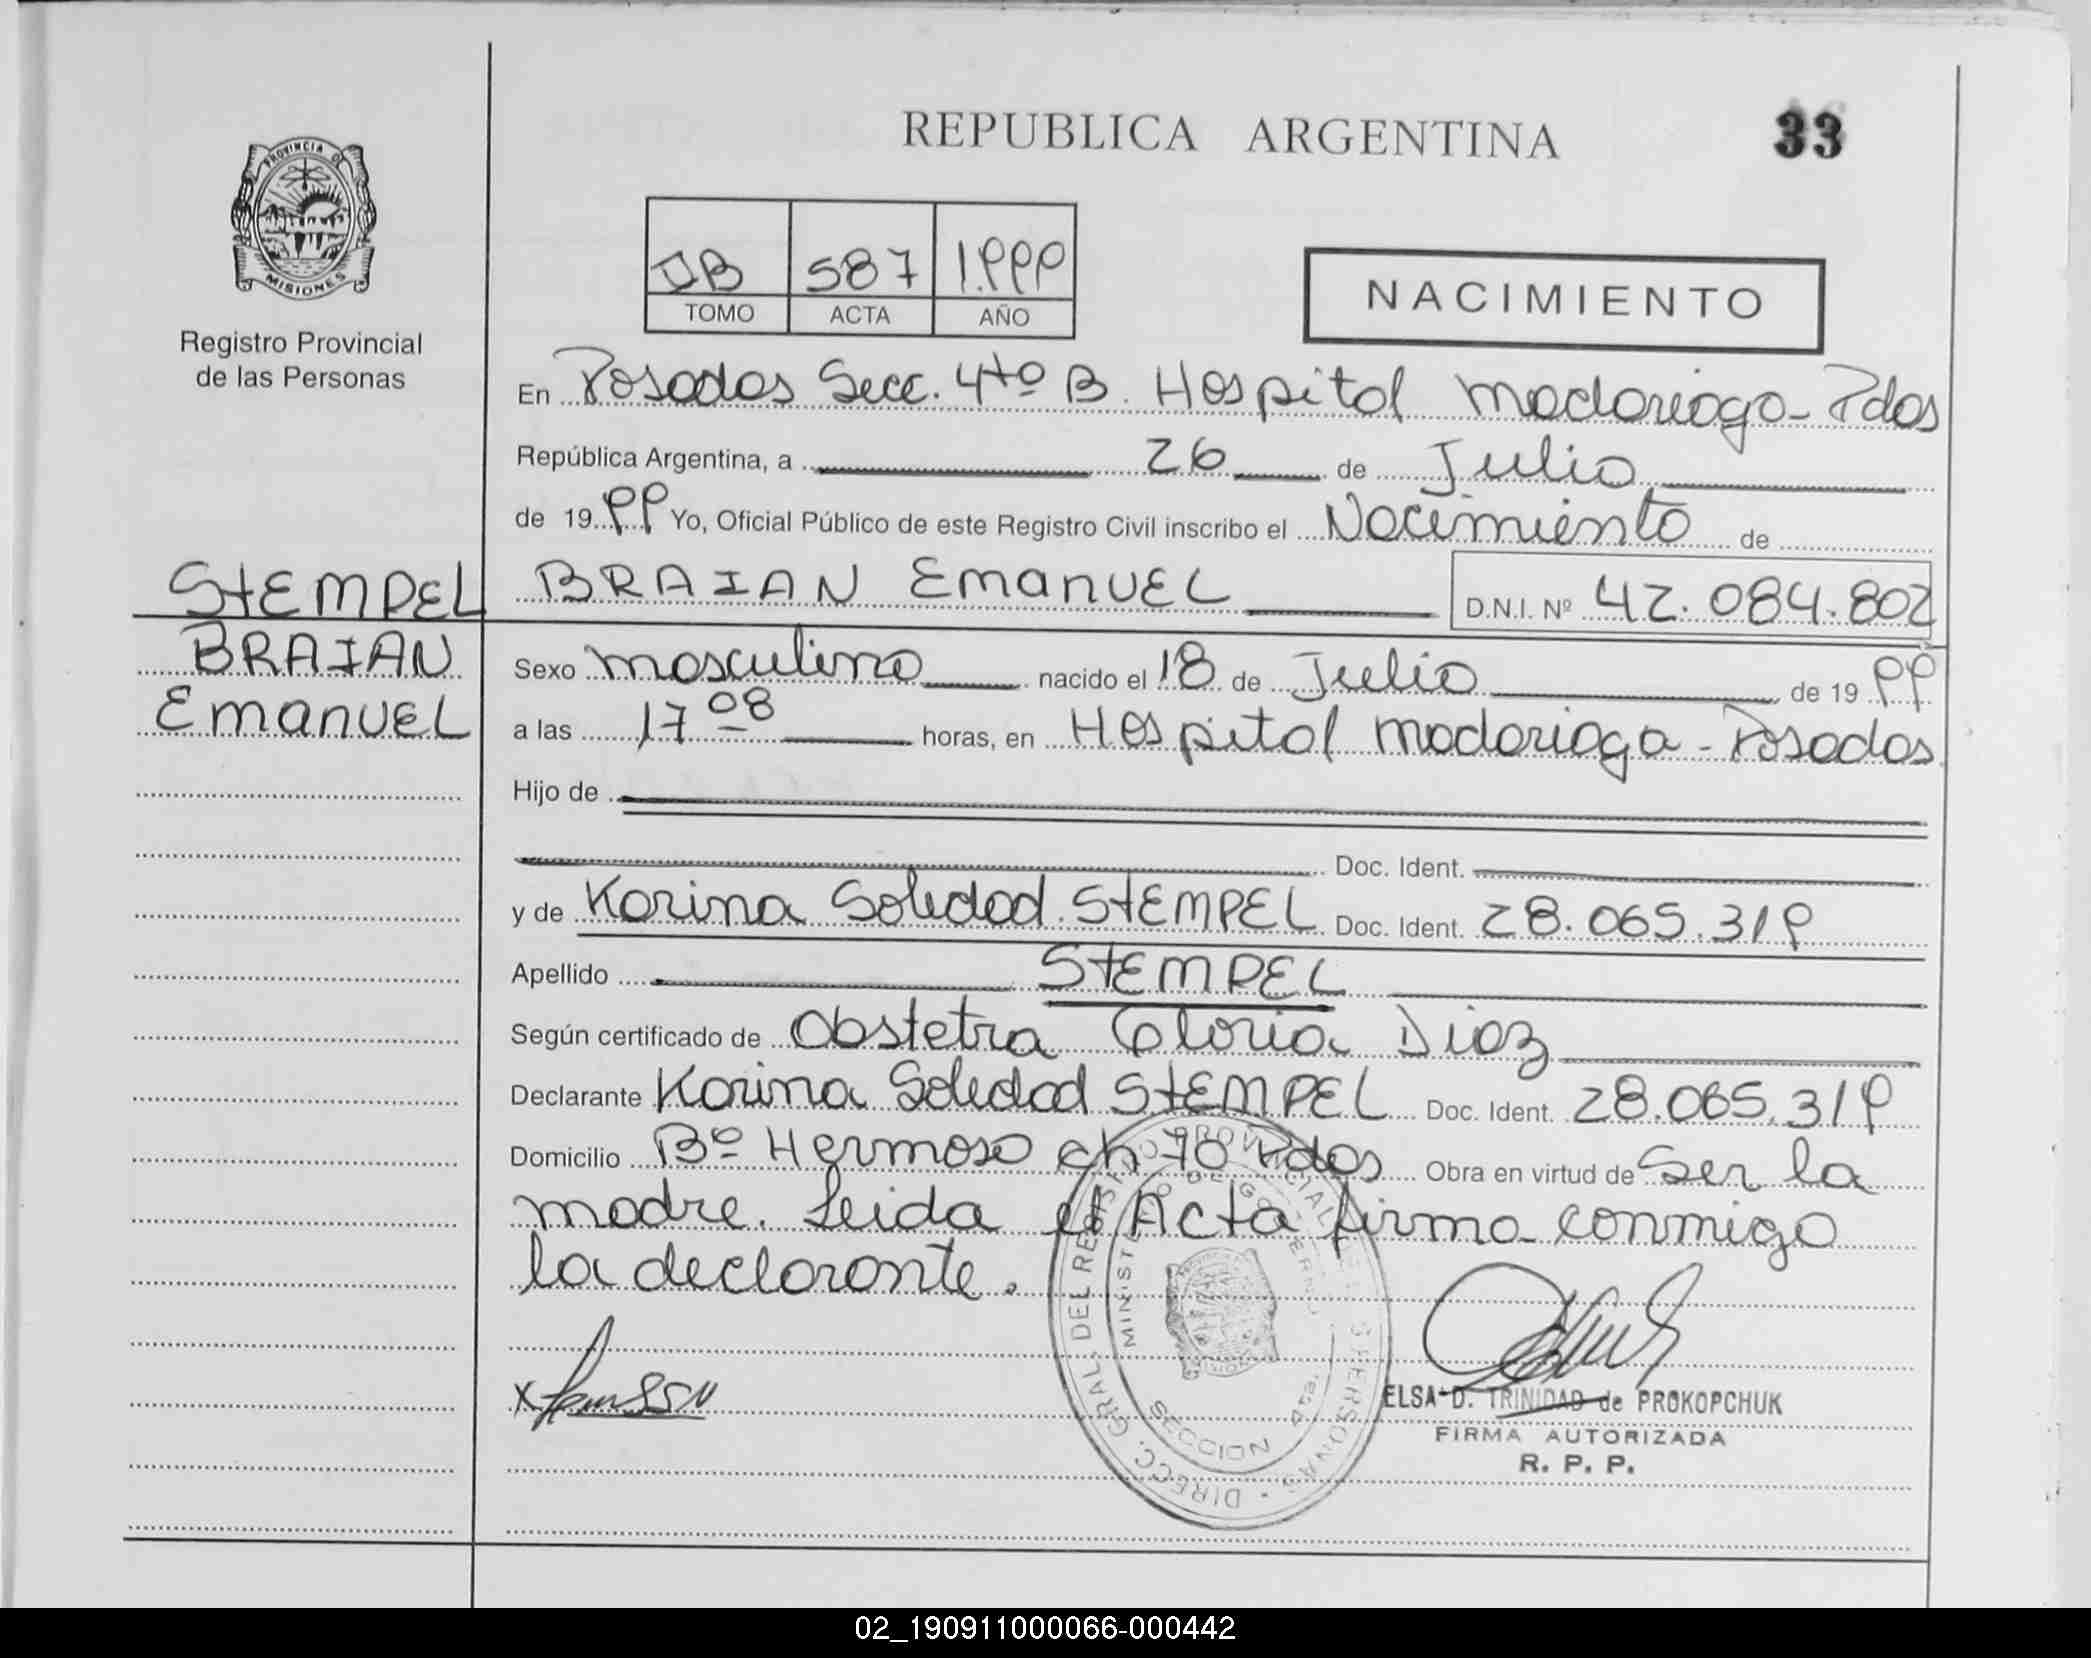 REPUBLICA ARGENTINA
33
PROVINCIA DE
MISIONES
Registro Provincial
de las Personas
IIB 587 1.999
TOMO ACTA AÑO
NACIMIENTO
En Posadas Secc. 4tº B. Hospital Madariaga - Pdas
República Argentina, a 26 de Julio
de 1999 Yo, Oficial Público de este Registro Civil inscribo el Nacimiento de
STEMPEL
BRAIAN
EmanuEL
BRAIAN EmanuEL D.N.I. Nº 42.084.802
Sexo masculino nacido el 18 de Julio de 1999
a las 17 08 horas, en Hospital Madariaga - Posadas
Hijo de
Doc. Ident.
y de Karina Soledad STEMPEL Doc. Ident. 28.065.319
Apellido STEMPEL
Según certificado de Obstetra Gloria Diaz
Declarante Karina Soledad STEMPEL Doc. Ident. 28.065.319
Domicilio Bº Hermoso ch 70 Pdas Obra en virtud de Ser la
madre. Leida el Acta firma conmigo
la declarante.
DIRECC. GRAL. DEL REGISTRO PROVINCIAL DE LAS PERSONAS
MINISTERIO DE GOBIERNO
SECCION 4ta.
ELSA D. TRINIDAD de PROKOPCHUK
FIRMA AUTORIZADA
R. P. P.
02_190911000066-000442